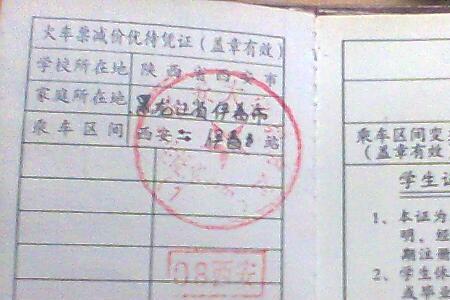 火车票减价优待凭证（盖章有效）
学校所在地 陕西省西安市
家庭所在地 黑龙江省伊春市
乘车区间 西安 伊春 站
西安
乘车区间变
（盖章有效
学生证
1、本证为
明，经
期注册
2、学生休
或毕业